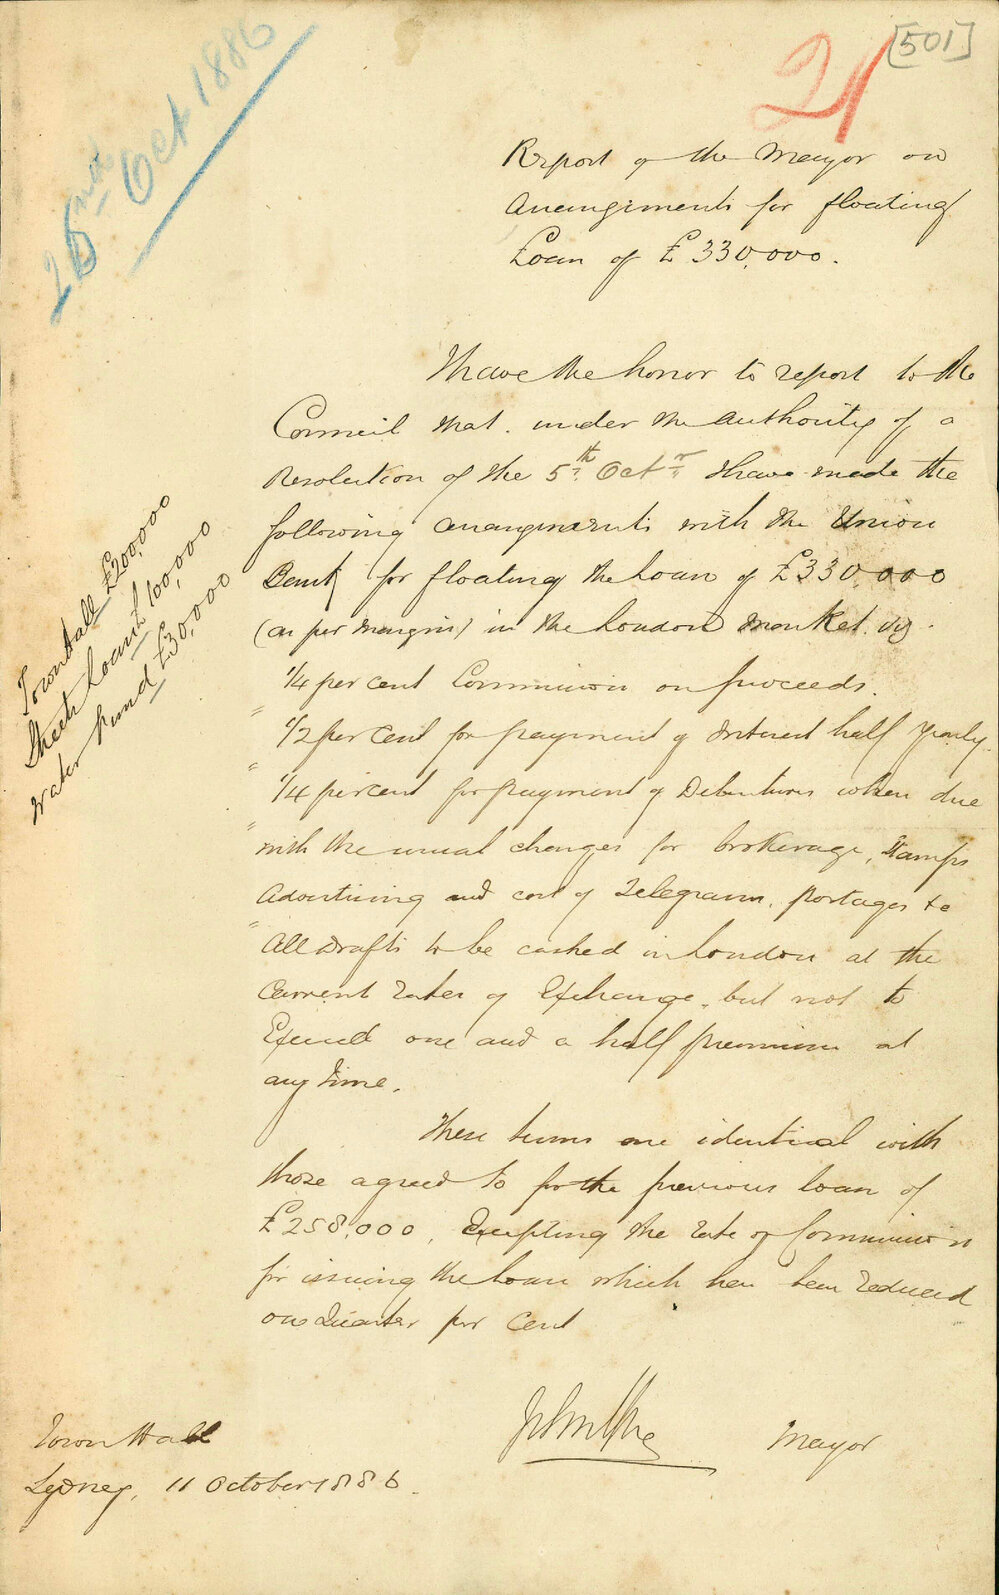 [501]
21
Oct 1886
Report of the Mayor on
Arrangements for floating
Loan of £330,000.
I have the honor to report to the
Council that. under the authority of a
Resolution of the 5th Octr I have made the
following arrangements with the Union
Bank for floating the Loan of £330,000
(as per margin) in the London Market. viz.
Town Hall £200,000
Streets Loan £100,000
Water fund £30,000
1/4 per cent Commission on proceeds.
" 1/2 per cent for payment of Interest half yearly.
" 1/4 per cent for payment of Debentures when due
" with the usual charges for brokerage, Stamps
Advertising and cost of Telegrams. postages &c
" All Drafts to be cashed in London at the
Current rates of Exchange. but not to
Exceed one and a half premium at
any time.
These terms are identical with
those agreed to for the previous loan of
£258,000, Excepting the rate of Commission
for issuing the loan which has been reduced
one Quarter per Cent
Mayor
Town Hall
Sydney, 11 October 1886.